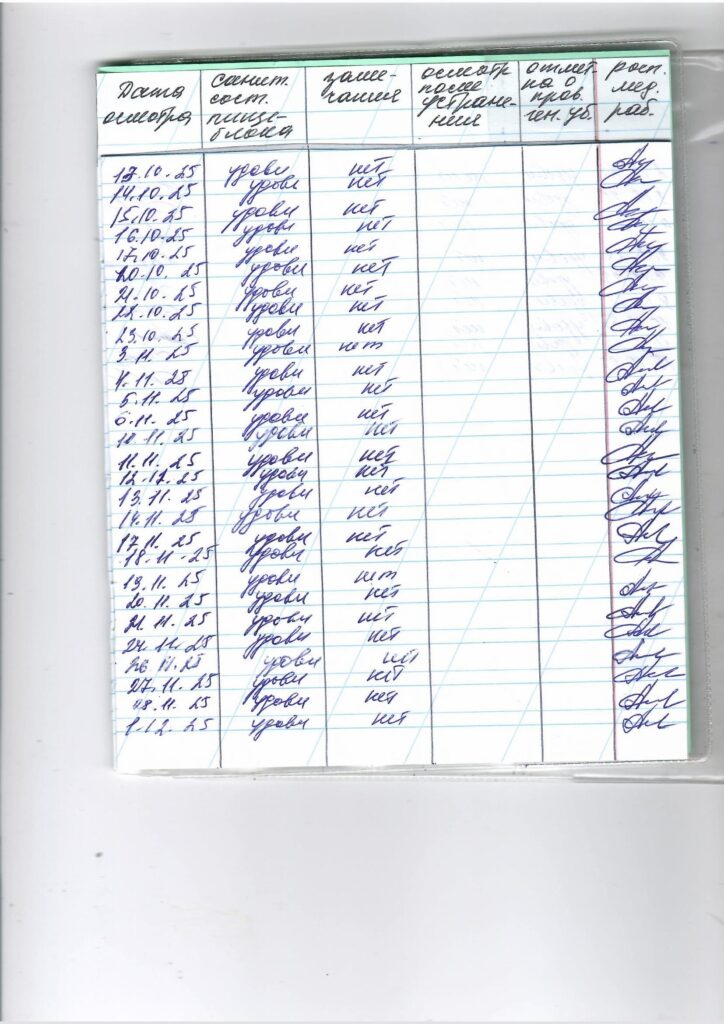 Дата осмотра | санит. сост. пище-блока | заме-чания | осмотр после устране-ния | отмет-ка о пров. ген. уб. | росп. мед. раб.
13.10.25 удовл нет
14.10.25 удовл нет
15.10.25 удовл нет
16.10.25 удовл нет
17.10.25 удовл нет
20.10.25 удовл нет
21.10.25 удовл нет
22.10.25 удовл нет
23.10.25 удовл нет
3.11.25 удовл нет
4.11.25 удовл нет
5.11.25 удовл нет
6.11.25 удовл нет
10.11.25 удовл нет
11.11.25 удовл нет
12.11.25 удовл нет
13.11.25 удовл нет
14.11.25 удовл нет
17.11.25 удовл нет
18.11.25 удовл нет
19.11.25 удовл нет
20.11.25 удовл нет
21.11.25 удовл нет
24.11.25 удовл нет
26.11.25 удовл нет
27.11.25 удовл нет
28.11.25 удовл нет
1.12.25 удовл нет